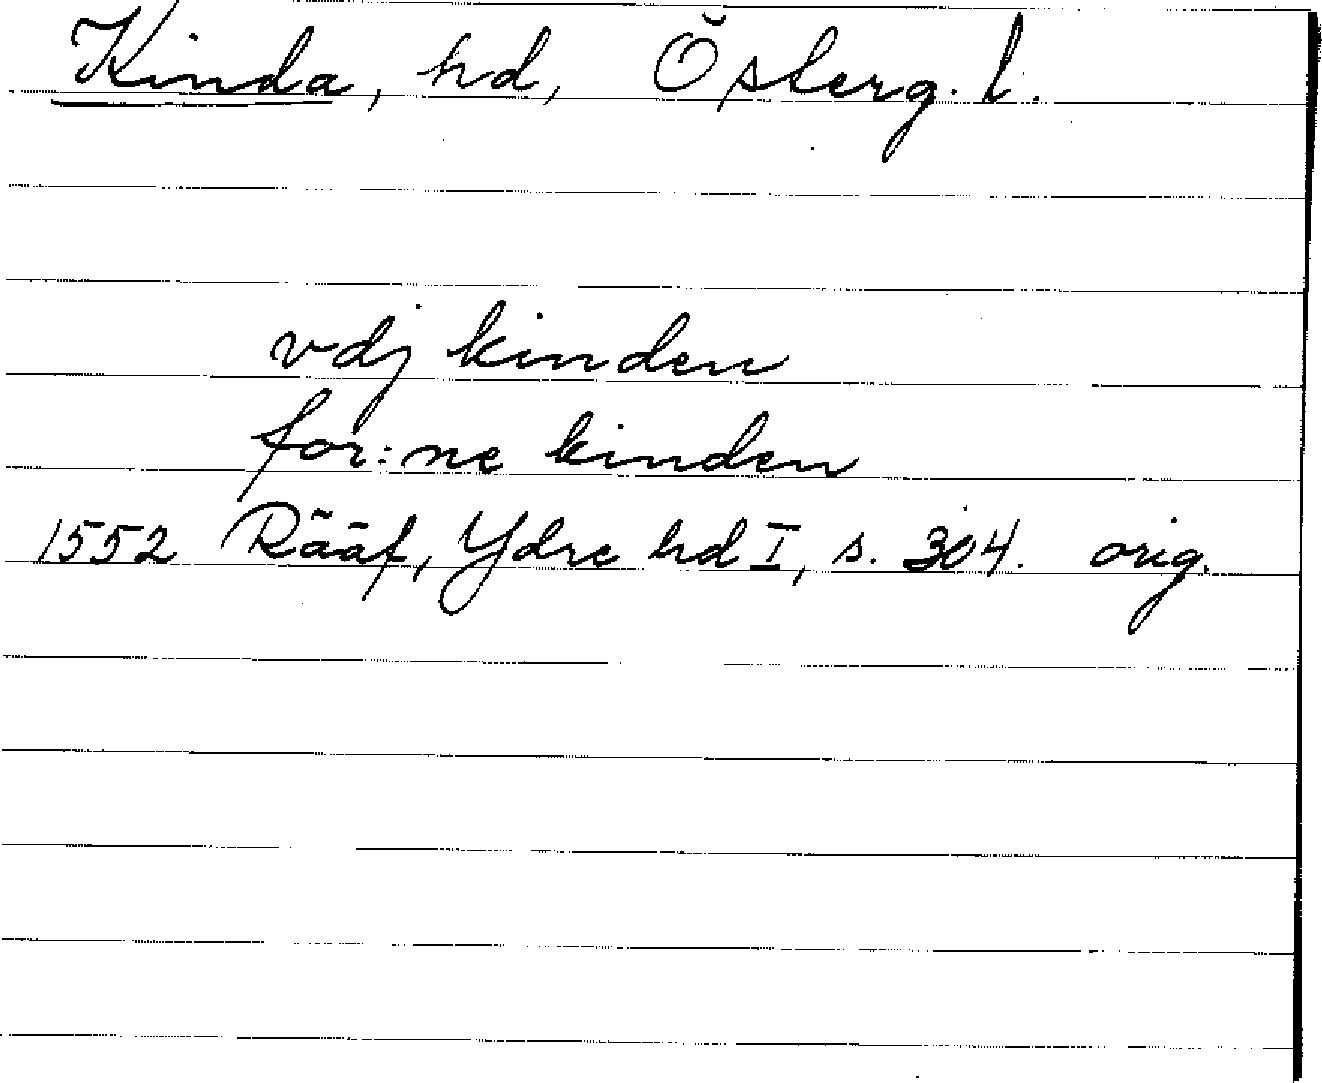 Kinda, hd, Österg. l.
vdj kinden
for:ne kinden
1552 Rääf, Ydre hd I, s. 304. orig.